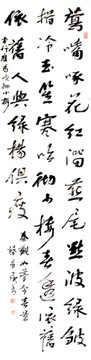 鶯嘴啄花紅溜燕尾點波綠皺
指冷玉笙寒吹徹小梅春透依舊
依舊人與綠楊俱瘦
秦觀如夢令春景